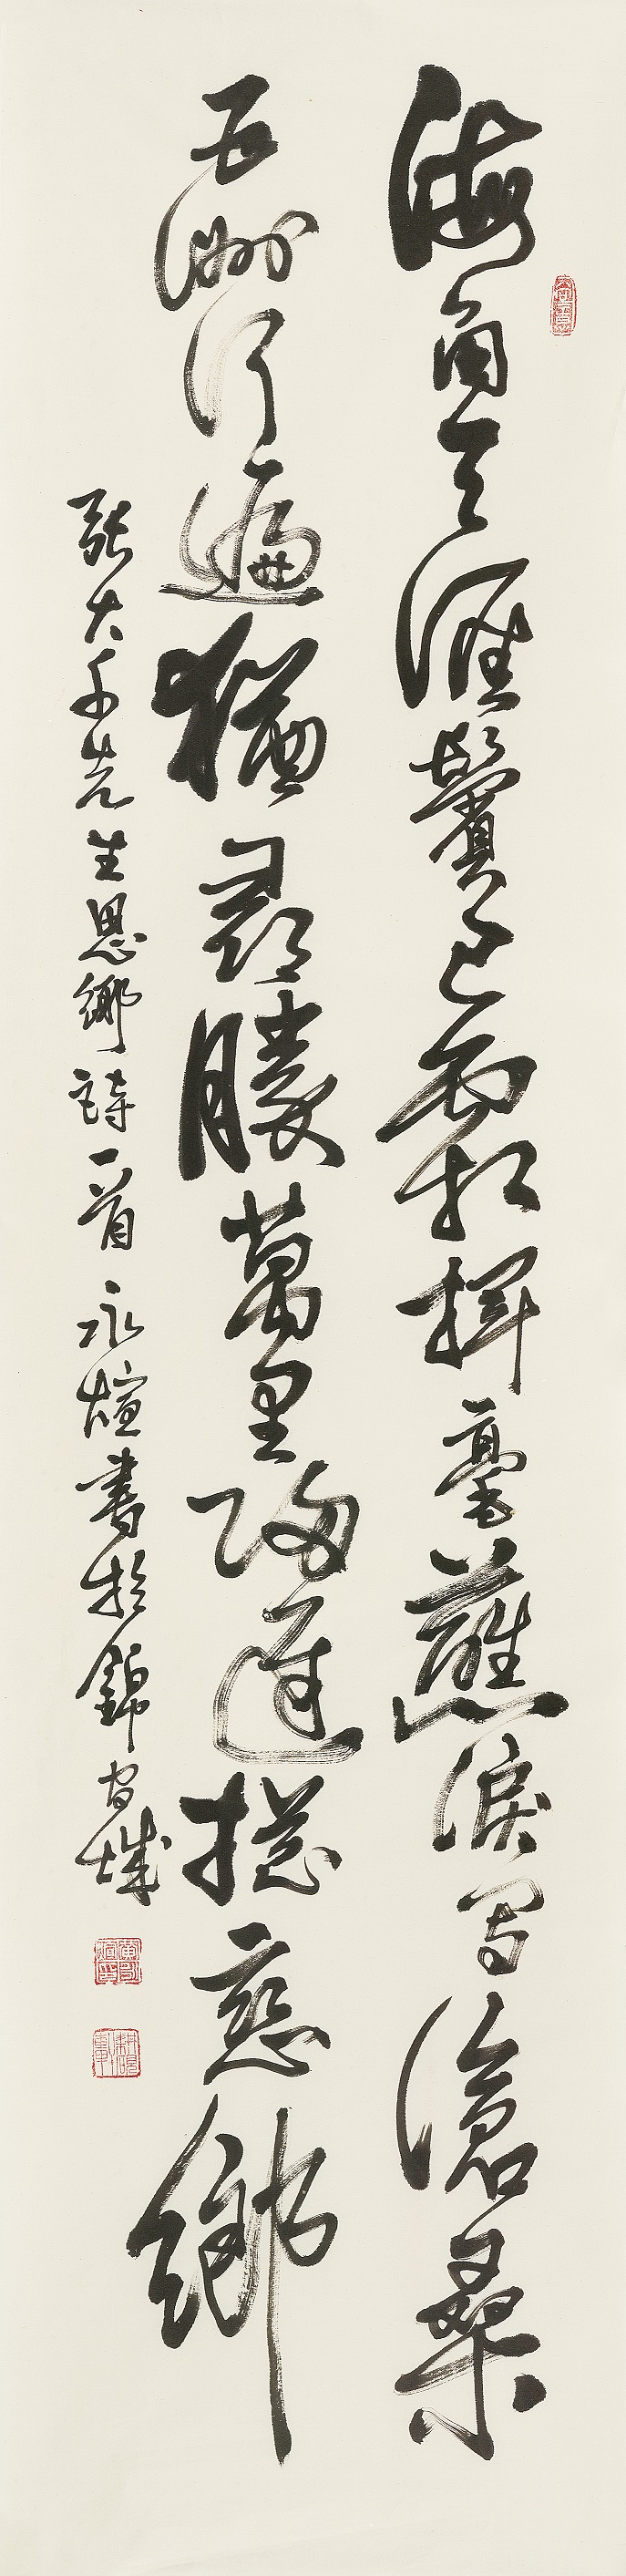 海角天涯鬢已霜揮毫蘸淚寫滄桑
五洲行遍猶尋勝萬里歸遲總戀鄉
張大千先生思鄉詩一首 永煊書於錦官城